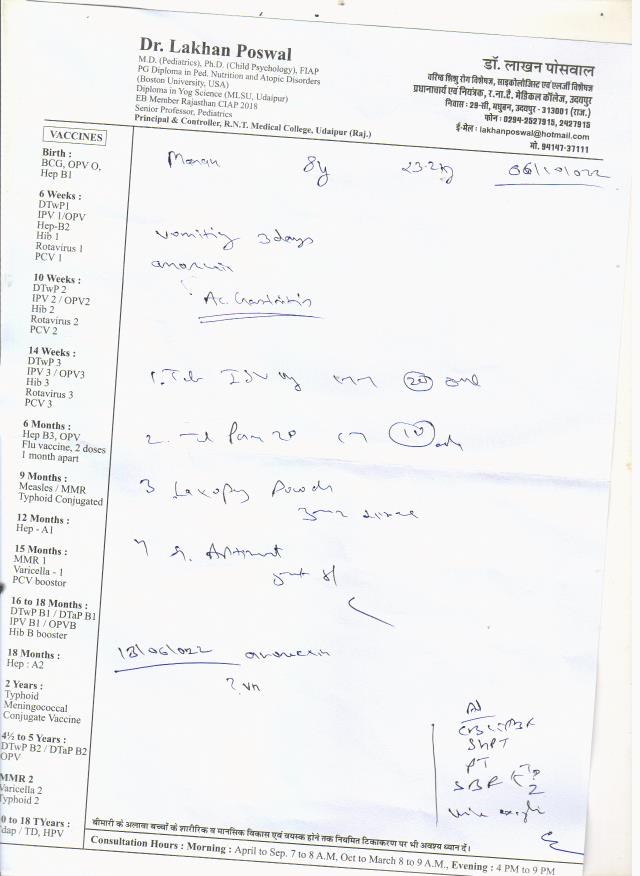 Dr. Lakhan Poswal
M.D. (Pediatrics), Ph.D. (Child Psychology), FIAP
PG Diploma in Ped. Nutrition and Atopic Disorders
(Boston University, USA)
Diploma in Yog Science (MLSU, Udaipur)
EB Member Rajasthan CIAP 2018
Senior Professor, Pediatrics
Principal & Controller, R.N.T. Medical College, Udaipur (Raj.)
डॉ. लाखन पोसवाल
वरिष्ठ शिशु रोग विशेषज्ञ, साइकोलोजिस्ट एवं एलर्जी विशेषज्ञ
प्रधानाचार्य एवं नियंत्रक, र.ना.टै. मेडिकल कॉलेज, उदयपुर
निवास : 29-सी, मधुबन, उदयपुर - 313001 (राज.)
फोन : 0294-2527915, 2427915
ई-मेल : lakhanposwal@hotmail.com
मो. 94147-37111
VACCINES
Birth :
BCG, OPV O,
Hep B1
6 Weeks :
DTwP1
IPV 1/OPV
Hep-B2
Hib 1
Rotavirus 1
PCV 1
10 Weeks :
DTwP 2
IPV 2 / OPV2
Hib 2
Rotavirus 2
PCV 2
14 Weeks :
DTwP 3
IPV 3 / OPV3
Hib 3
Rotavirus 3
PCV 3
6 Months :
Hep B3, OPV
Flu vaccine, 2 doses
1 month apart
9 Months :
Measles / MMR
Typhoid Conjugated
12 Months :
Hep - A1
15 Months :
MMR 1
Varicella - 1
PCV boostor
16 to 18 Months :
DTwP B1 / DTaP B1
IPV B1 / OPVB
Hib B booster
18 Months :
Hep : A2
2 Years :
Typhoid
Meningococcal
Conjugate Vaccine
4½ to 5 Years :
DTwP B2 / DTaP B2
OPV
MMR 2
Varicella 2
Typhoid 2
0 to 18 TYears :
dap / TD, HPV
8y 23.2kg
vomiting 3days
anorexia
Ac. Gastritis
1. Tab 20
2. 20 10
3 Powder
4
18/06/022 anorexia
SGPT
PT
बीमारी के अलावा बच्चों के शारीरिक व मानसिक विकास एवं वयस्क होने तक नियमित टिकाकरण पर भी अवश्य ध्यान दें।
Consultation Hours : Morning : April to Sep. 7 to 8 A.M, Oct to March 8 to 9 A.M., Evening : 4 PM to 9 PM